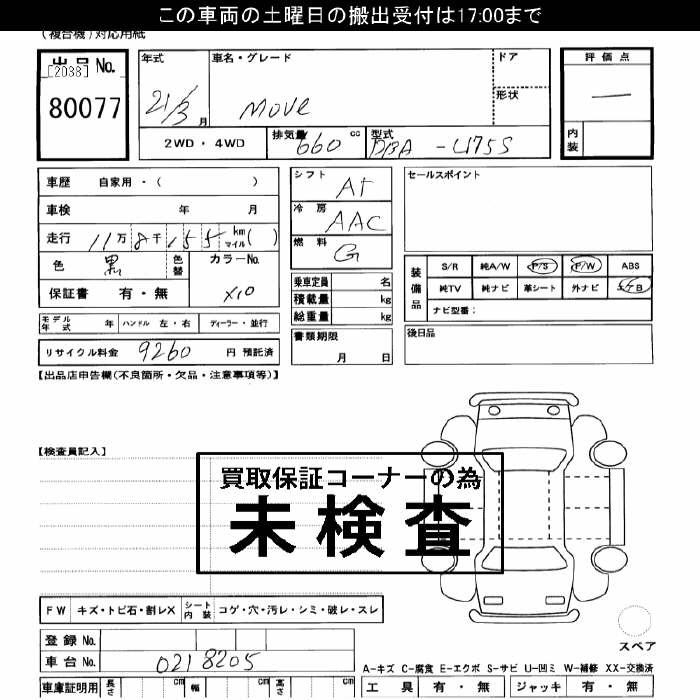 この車両の土曜日の搬出受付は17:00まで
(複合機)対応用紙
出品No.
[2038]
80077
年式
21/3月
車名・グレード
MOVE
ドア
形状
2WD・4WD
排気量 660 cc
型式 DBA-L175S
評価点
—
内装
車歴 自家用・( )
車検 年 月
走行 11万8千155km マイル( )
色 黒
色替
カラーNo.
X10
保証書 有・無
シフト AT
冷房 AAC
燃料 G
乗車定員 名
積載量 kg
総重量 kg
書類期限
月 日
セールスポイント
装備品
S/R 純A/W P/S P/W ABS
純TV 純ナビ 革シート 外ナビ エアB
ナビ型番:
後日品
モデル年式 年 ハンドル 左・右 ディーラー・並行
リサイクル料金 9260 円 預託済
【出品店申告欄(不良箇所・欠品・注意事項等)】
【検査員記入】
買取保証コーナーの為
未検査
FW キズ・トビ石・割レX シート内装 コゲ・穴・汚レ・シミ・破レ・スレ
登録No.
車台No. 0218205
スペア
A-キズ C-腐食 E-エクボ S-サビ U-凹ミ W-補修 XX-交換済
車庫証明用 長さ cm 幅 cm 高さ cm
工具 有・無 ジャッキ 有・無